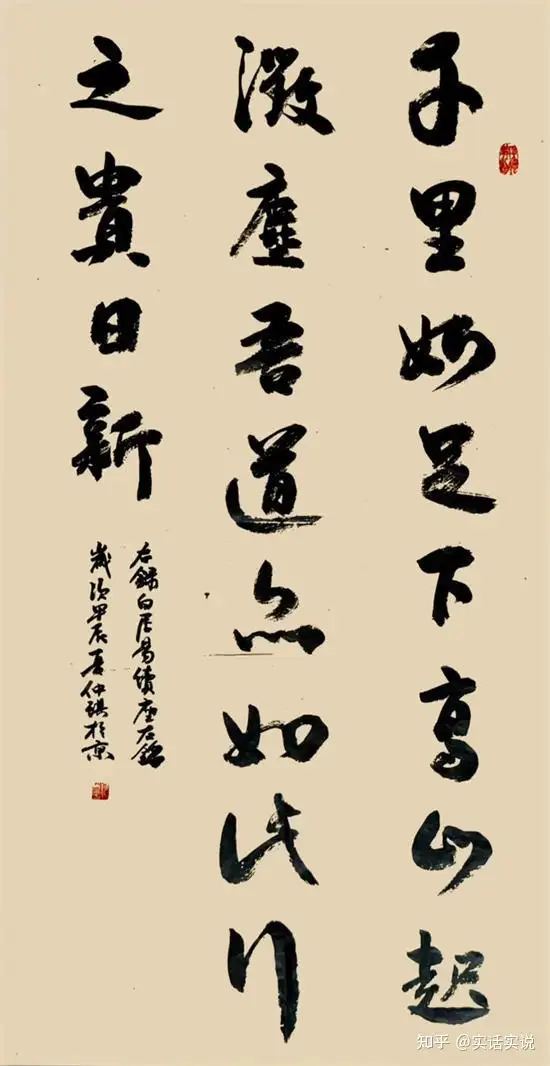 千里始足下高山起
微塵吾道亦如此行
之貴日新
右錄白居易續座右銘
歲次甲辰夏仲於京
知乎 @实话实说